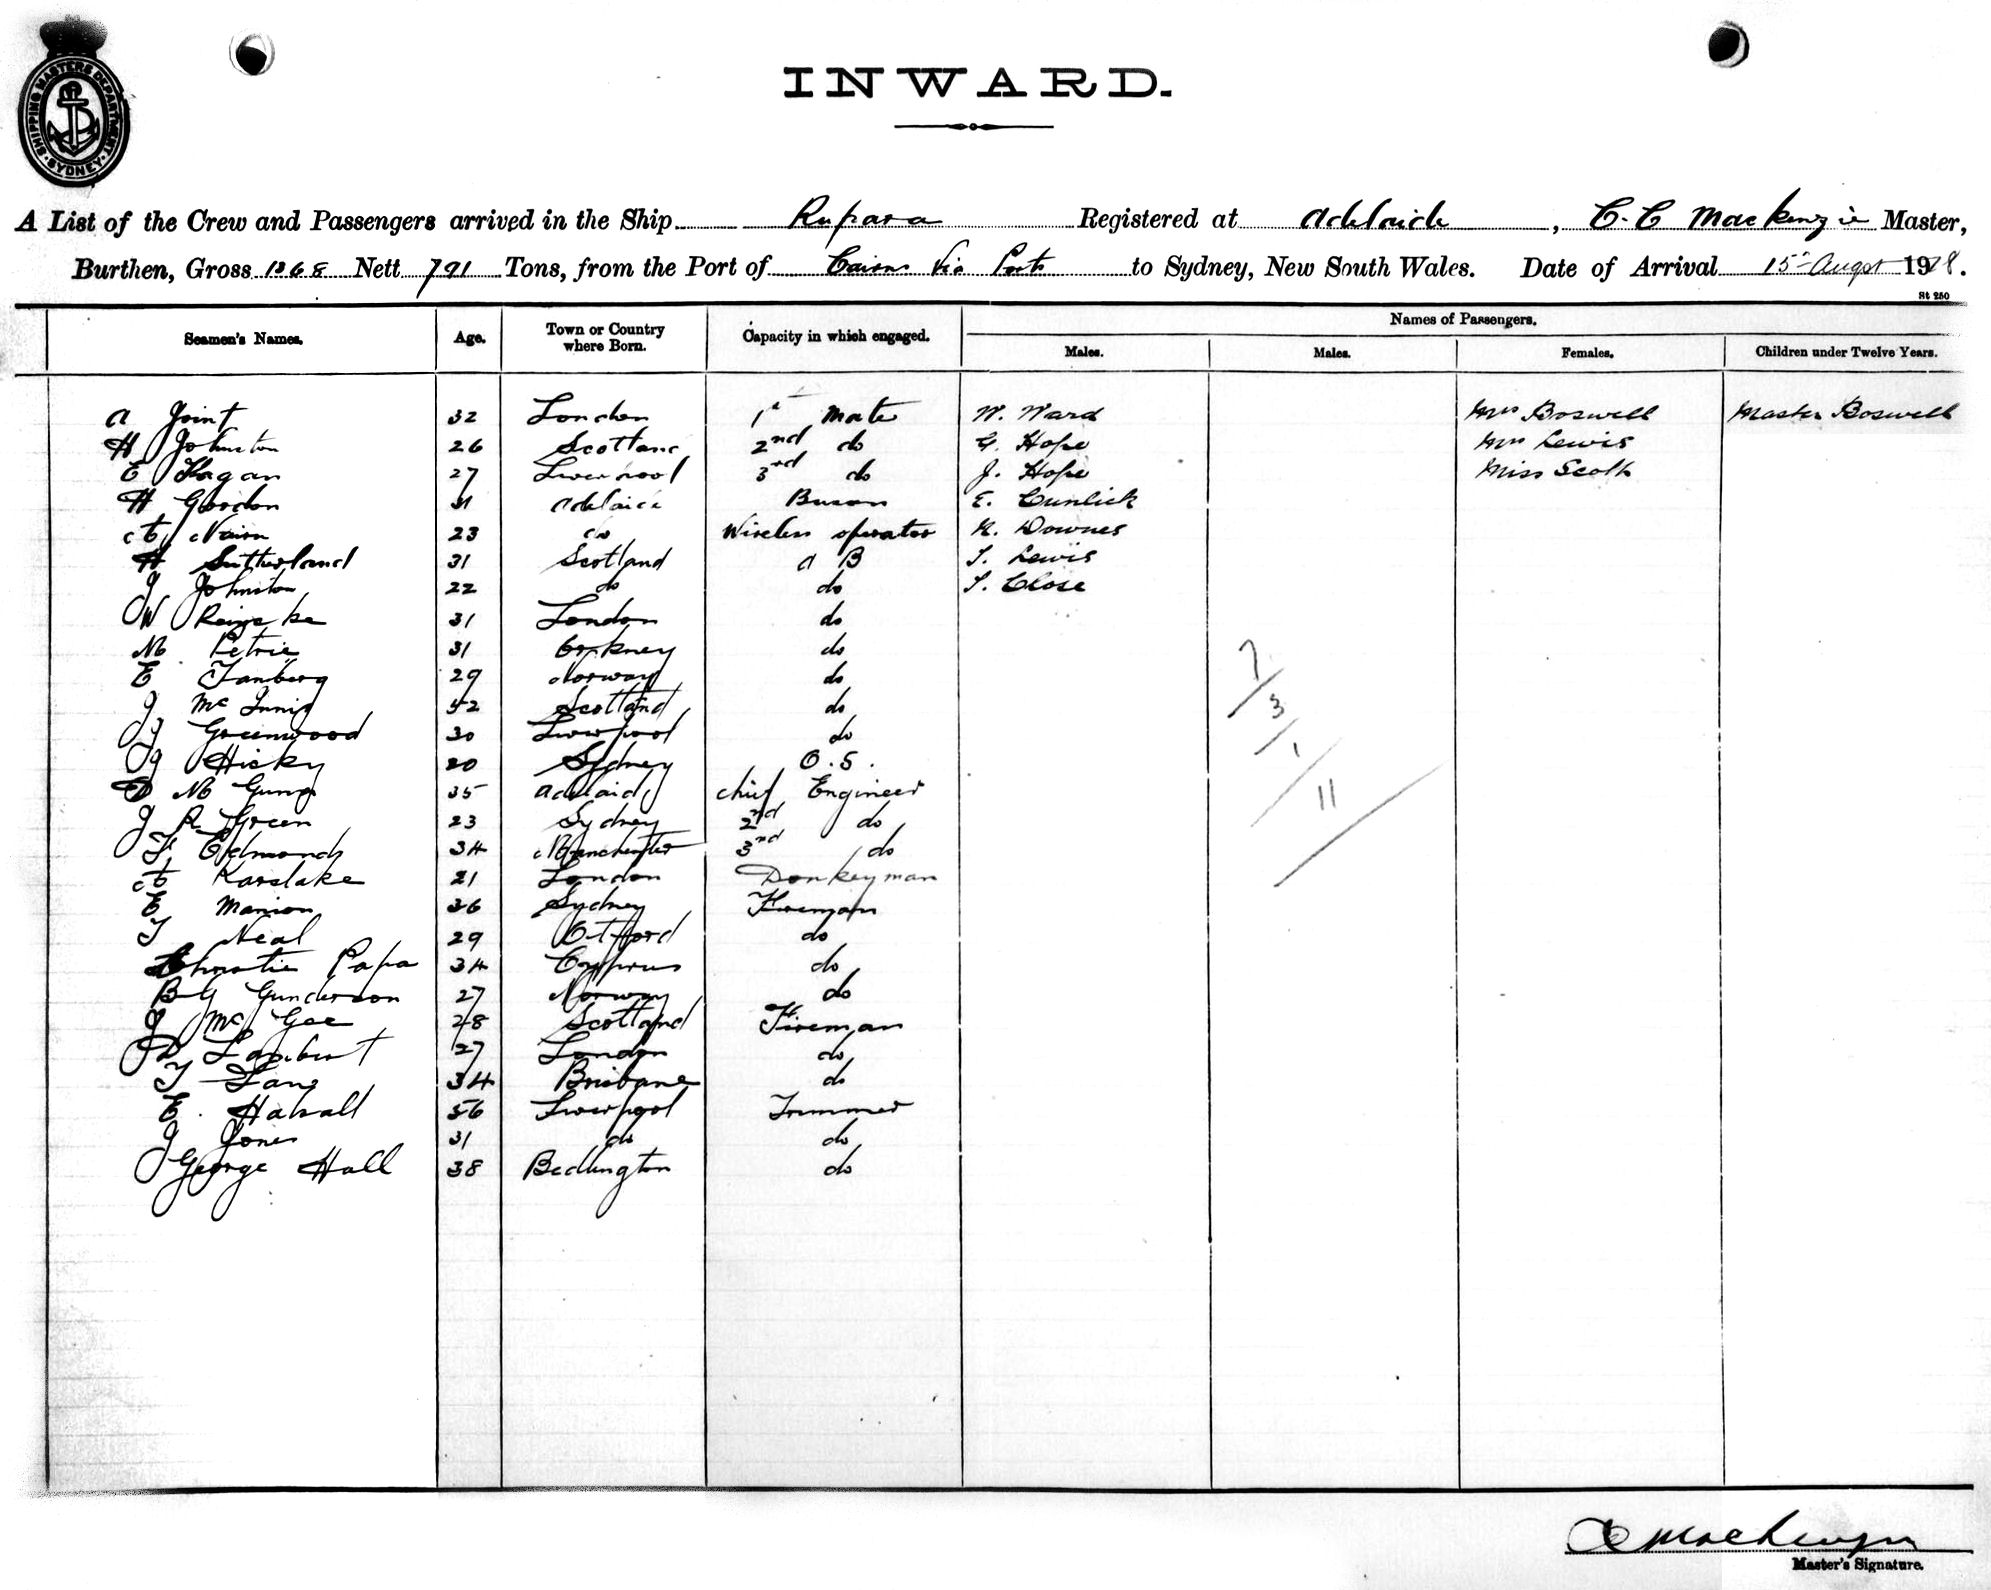 SHIPPING MASTERS DEPARTMENT · SYDNEY ·
INWARD.
A List of the Crew and Passengers arrived in the Ship Rupara Registered at Adelaide, C. C Mackenzie Master,
Burthen, Gross 1368 Nett 791 Tons, from the Port of Cairns via Ports to Sydney, New South Wales. Date of Arrival 15 Augst 1918.
St 250
Seamen's Names. Age. Town or Country where Born. Capacity in which engaged. Names of Passengers.
Males. Males. Females. Children under Twelve Years.
A Joint 32 London 1st Mate W. Ward Mrs Boswell Master Boswell
H Johnston 26 Scotland 2nd do G. Hope Mrs Lewis
E Hagan 27 Liverpool 3rd do J. Hope Miss Scott
H Gordon 31 Adelaide E. Cunlick
Nairn 23 do Wireless operator K. Downes
H Sutherland 31 Scotland A B T. Lewis
J Johnston 22 do do T. Close
W 31 London do
M Petrie 31 Orkney do
E Tanberg 29 Norway do
J McInnis 52 Scotland do
J Greenwood 30 Liverpool do
J Hicky 20 Sydney O.S.
D M Gunn 35 Adelaide Chief Engineer
J R Green 23 Sydney 2nd do
F Edmonds 34 Manchester 3rd do
Karslake 21 London Donkeyman
E Manion 36 Sydney Fireman
T Neal 29 Otford do
Christie Papa 34 Cyprus do
B G Gunderson 27 Norway do
J McGee 28 Scotland Fireman
Lambert 27 London do
T Lang 34 Brisbane do
E. Halsall 56 Liverpool Trimmer
J Jones 31 do do
George Hall 38 Bedlington do
7/3/1/11
C C Mackenzie
Master's Signature.